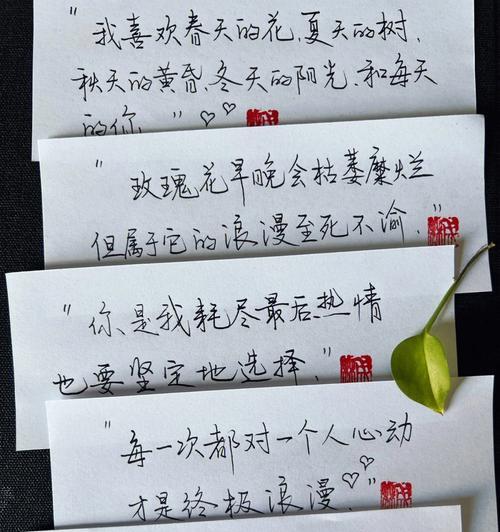 “我喜欢春天的花、夏天的树、
秋天的黄昏、冬天的阳光、和每天
的你”
“玫瑰花早晚会枯萎糜烂
但属于它的浪漫至死不渝.”
“你是我耗尽最后热情
也要坚定地选择.”
“每一次都对一个人心动
才是终极浪漫.”